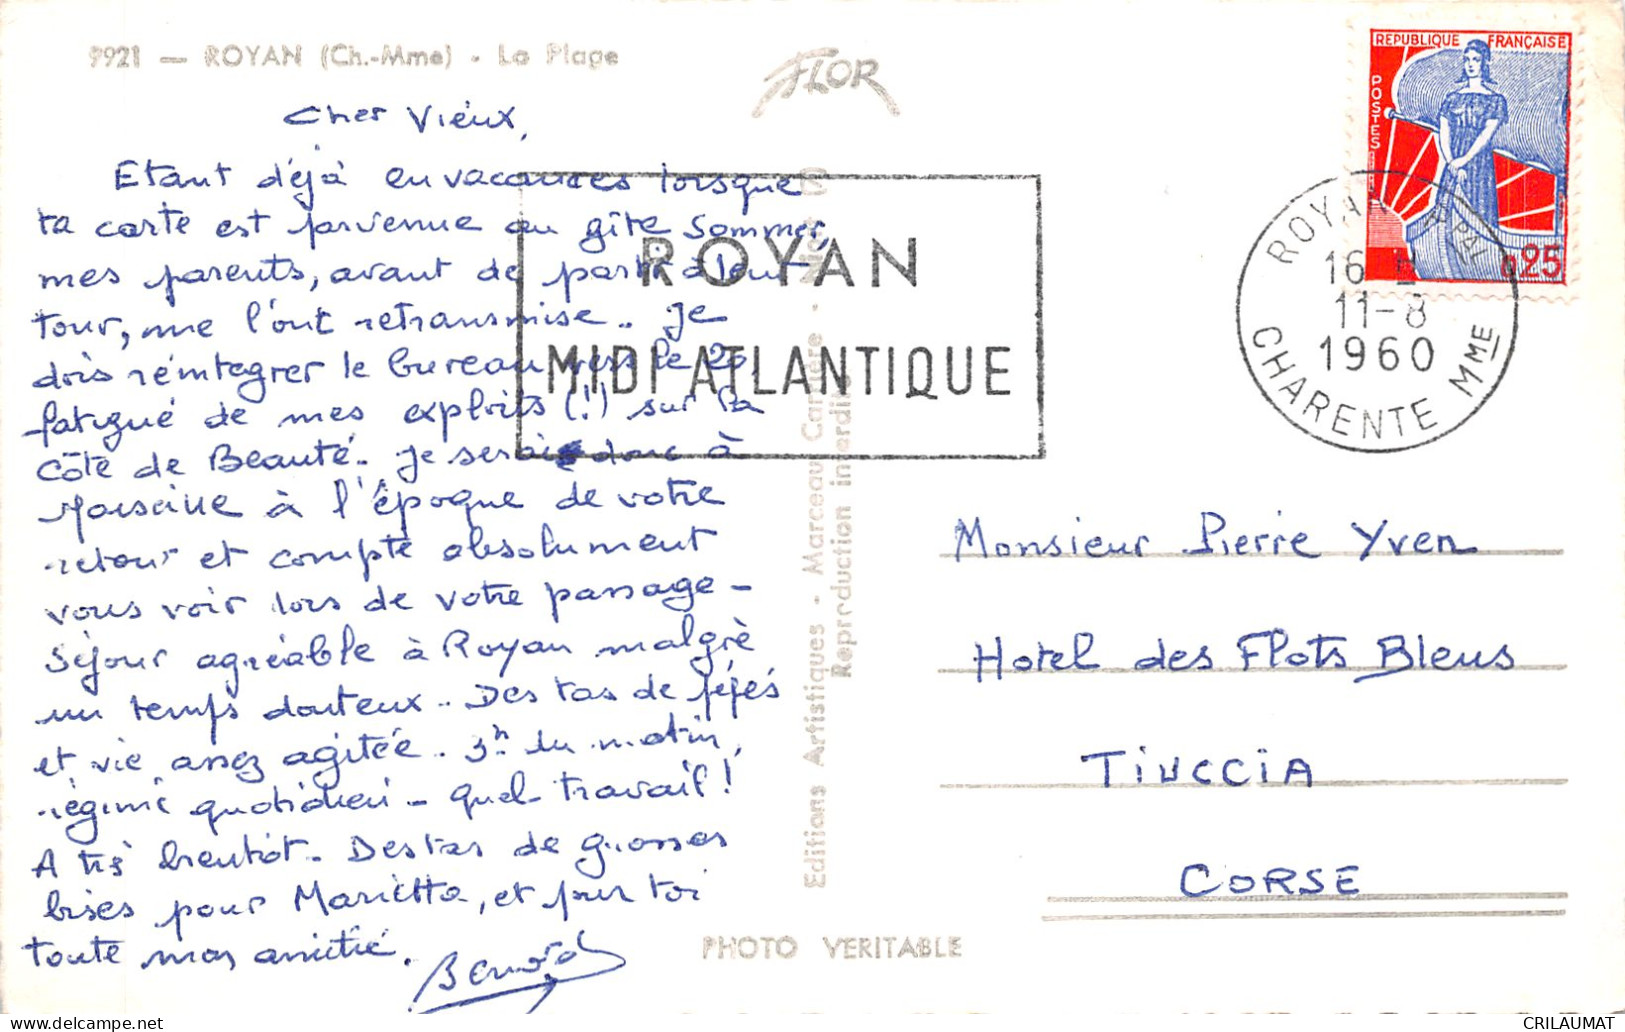 9921 — ROYAN (Ch.-Mme) - La Plage
FLOR
Cher Vieux,
Etant déjà en vacances lorsque
ta carte est parvenue au gîte Sommer,
mes parents, avant de partir à leur
tour, me l'ont retransmise.. Je
dois réintegrer le bureau vers le 20,
fatigué de mes exploits (!) sur la
Côte de Beauté. Je serai donc à
Marseille à l'époque de votre
retour et compte absolument
vous voir lors de votre passage -
Séjour agréable à Royan malgrè
un temps douteux.. Des tas de pépés
et vie assez agitée. 3h du matin,
régime quotidien - quel travail!
A très bientôt. Des tas de grosses
bises pour Marietta, et pour toi
toute mon amitié.
Bernard
ROYAN
MIDI ATLANTIQUE
Editions Artistiques - Marceau Carrière - Niort
Reproduction interdite
PHOTO VERITABLE
REPUBLIQUE FRANÇAISE
POSTES
0,25
ROYAN PPAL
16 H
11-8
1960
CHARENTE MME
Monsieur Pierre Yven
Hotel des Flots Bleus
TIUCCIA
CORSE
CRILAUMAT